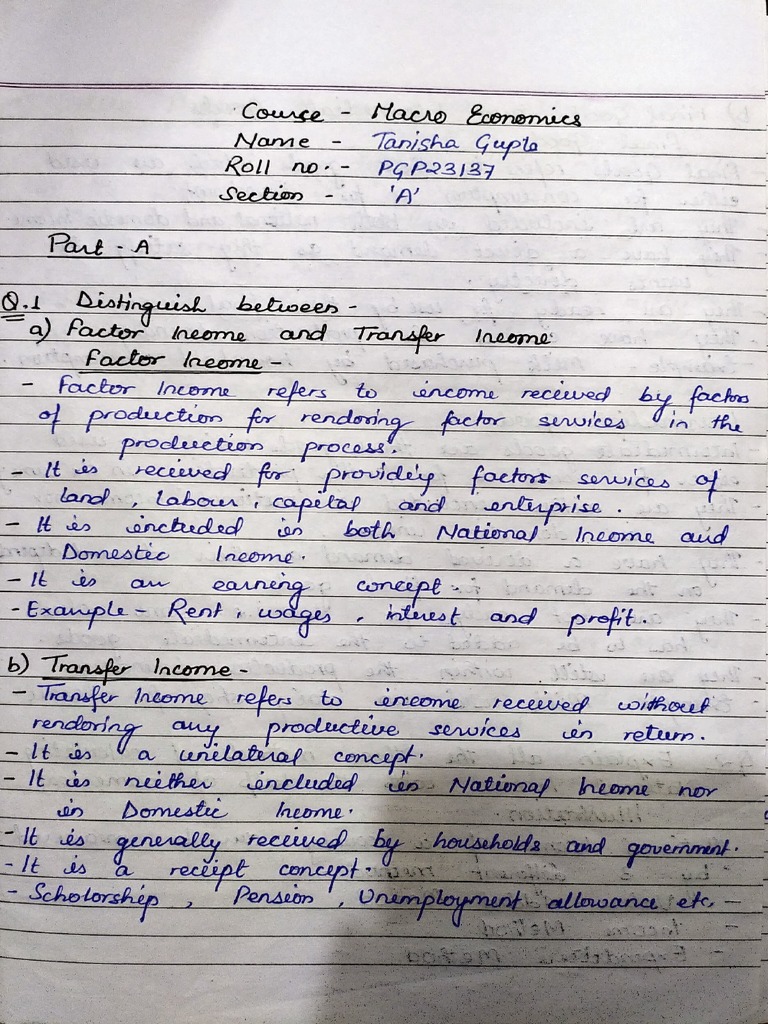 Course - Macro Economics
Name - Tanisha Gupta
Roll no. - PGP23137
Section - 'A'
Part - A
Q.1 Distinguish between -
a) Factor Income and Transfer Income
Factor Income -
- Factor Income refers to income received by factors
of production for rendoring factor services in the
production process.
- It is received for providing factors services of
land, labour, capital and enterprise.
- It is included in both National Income and
Domestic Income.
- It is an earning concept.
- Example - Rent, wages, interest and profit.
b) Transfer Income -
- Transfer Income refers to income received without
rendoring any productive services in return.
- It is a unilateral concept.
- It is neither included in National Income nor
in Domestic Income.
- It is generally received by households and government.
- It is a receipt concept.
- Scholorship, Pension, Unemployment allowance etc. -